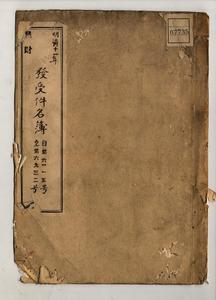 明治十二年
發受件名簿
自第六一一五号
至第六九三二号
07735